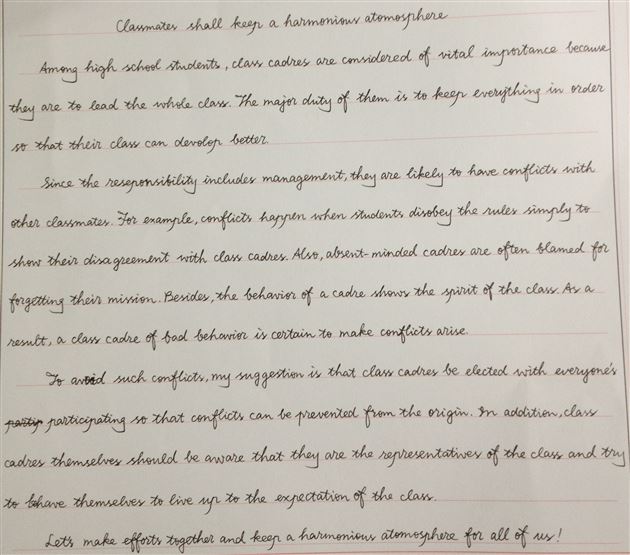 Classmates shall keep a harmonious atomosphere
Among high school students, class cadres are considered of vital importance because
they are to lead the whole class. The major duty of them is to keep everything in order
so that their class can devolop better.
Since the reseponsibility includes management, they are likely to have conflicts with
other classmates. For example, conflicts happen when students disobey the rules simply to
show their disagreement with class cadres. Also, absent-minded cadres are often blamed for
forgetting their mission. Besides, the behavior of a cadre shows the spirit of the class. As a
result, a class cadre of bad behavior is certain to make conflicts arise.
To avoid such conflicts, my suggestion is that class cadres be elected with everyone's
participating so that conflicts can be prevented from the origin. In addition, class
cadres themselves should be aware that they are the representatives of the class and try
to behave themselves to live up to the expectation of the class.
Let's make efforts together and keep a harmonious atomosphere for all of us!